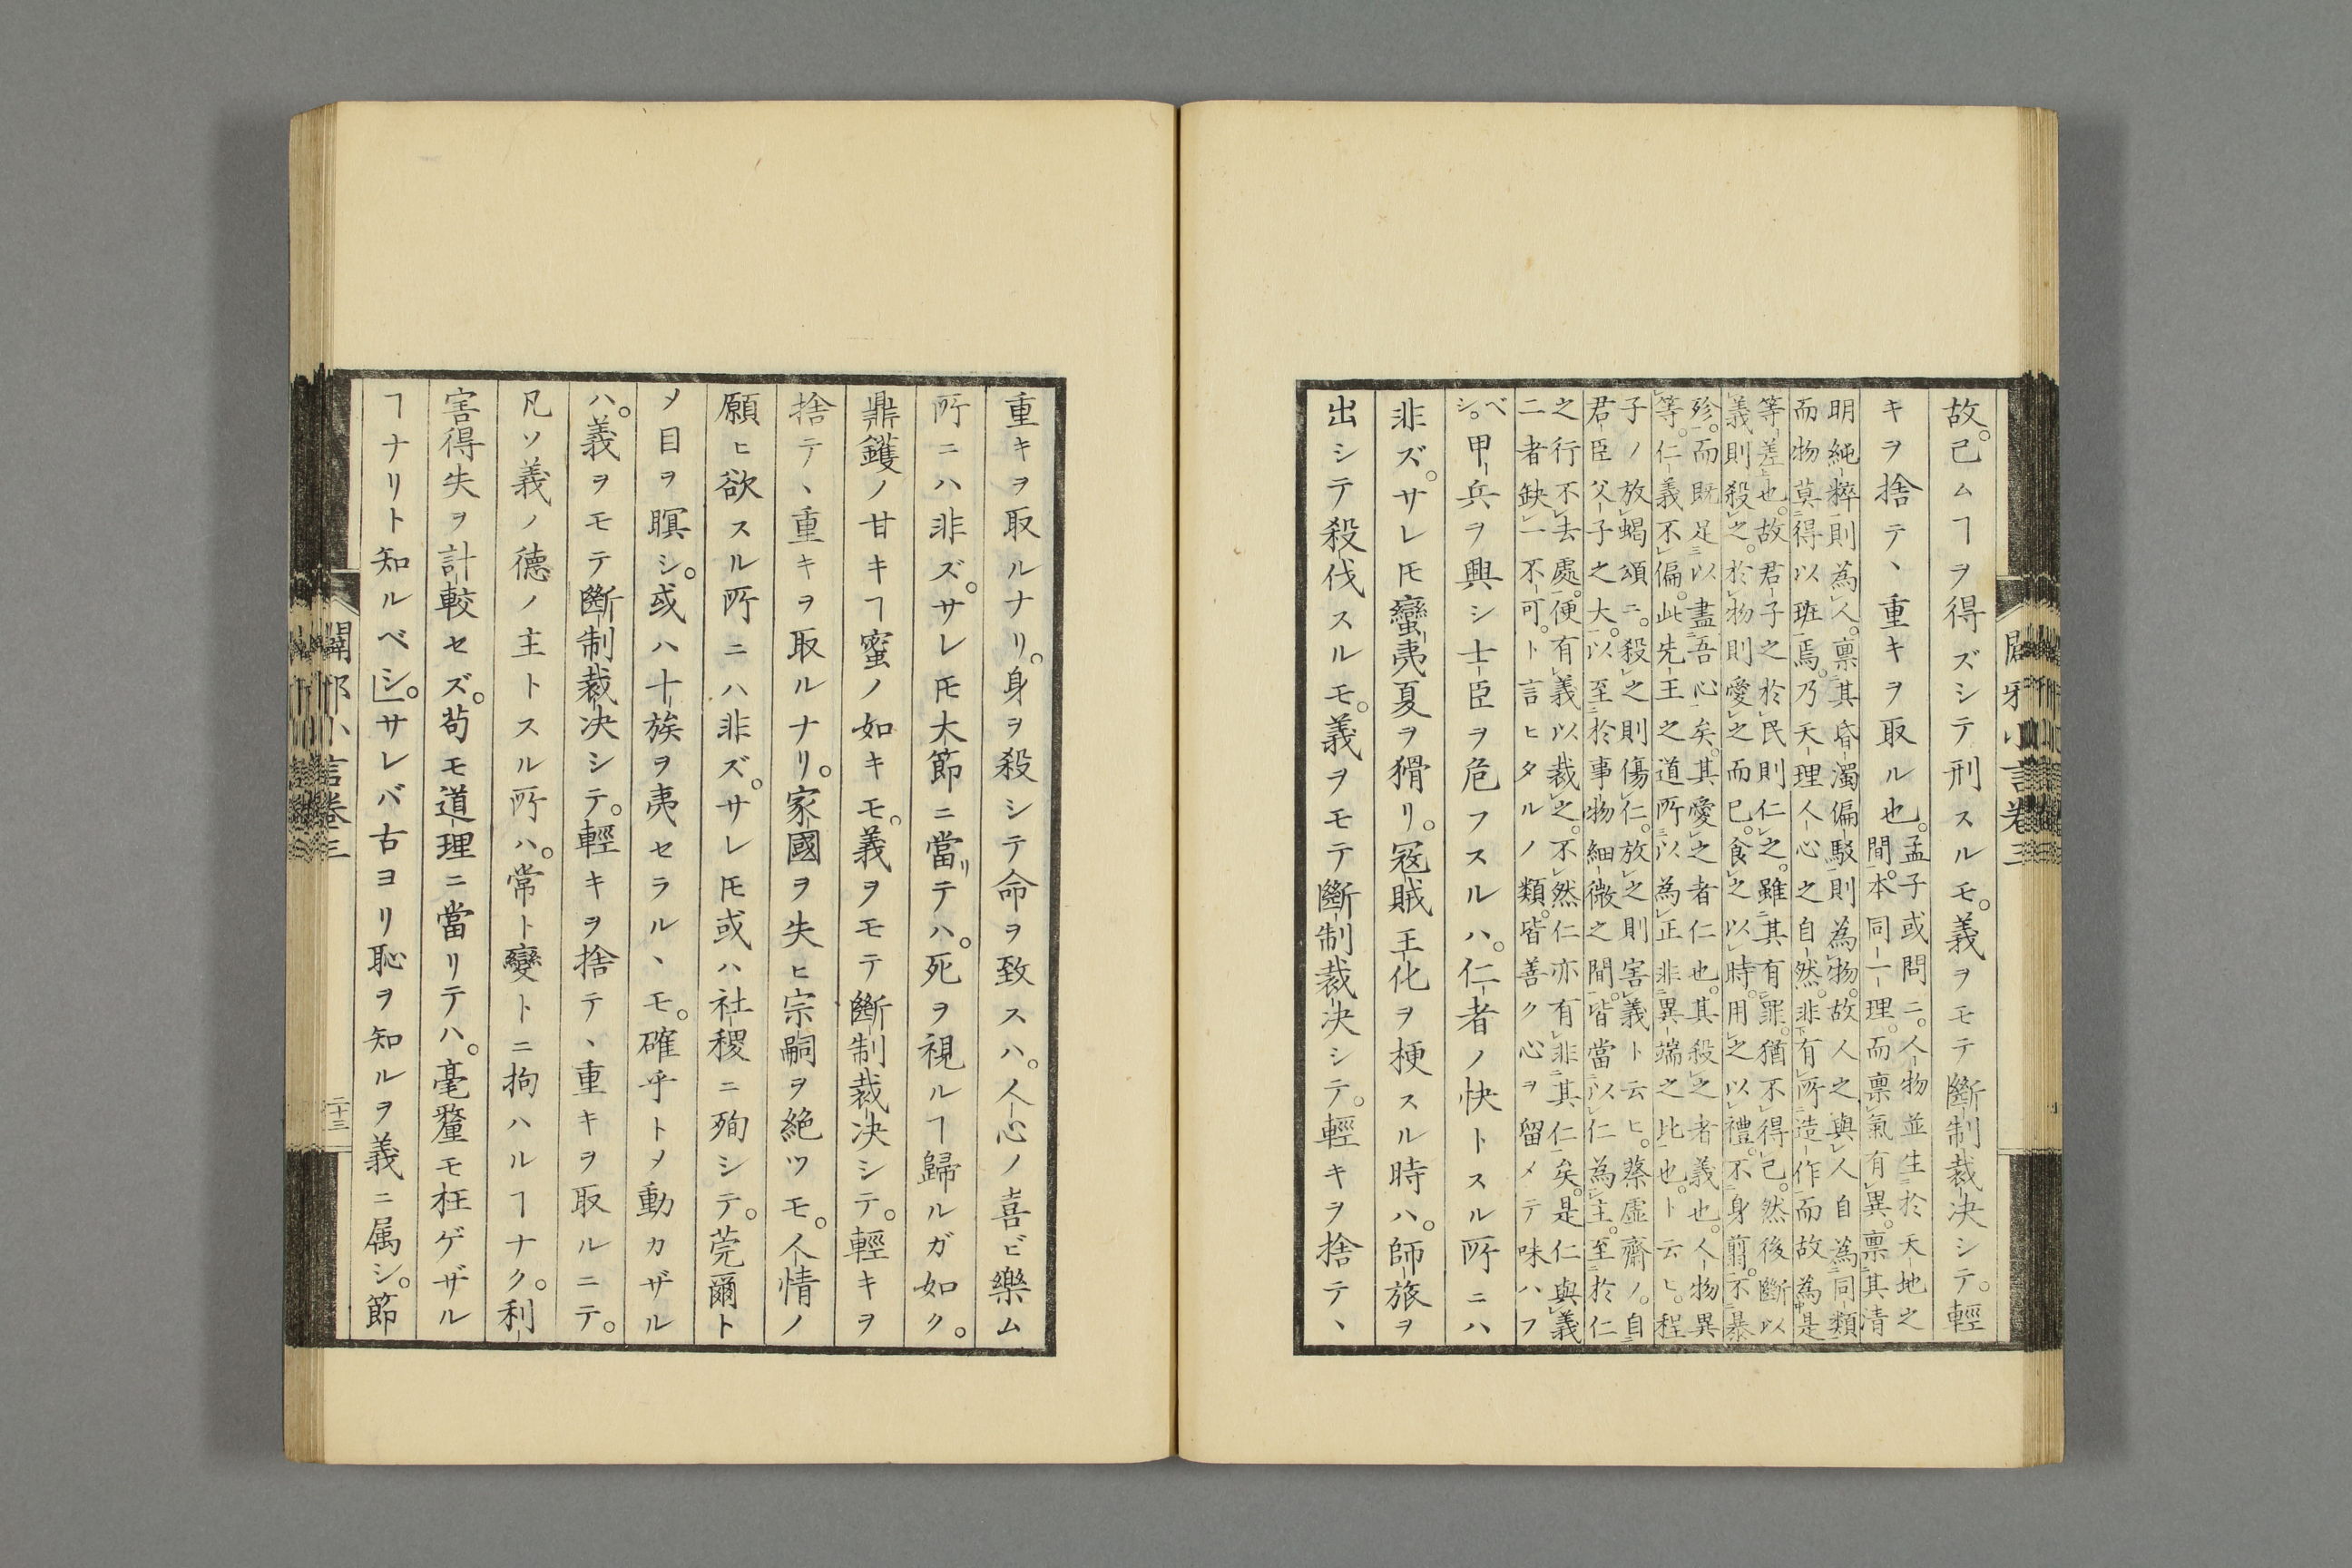 故。已ムヿヲ得ズシテ刑スルモ。義ヲモテ斷制裁决シテ。輕
キヲ捨テヽ重キヲ取ル也。
孟子或問ニ。人物並生於天地之
間。本同一理。而禀氣有異。禀其清
明純粹則為人。禀其昏濁偏駁則為物。故人之與人自為同類
而物莫得以班焉。乃天理人心之自然。非有所造作而故為是
等差也。故君子之於民則仁之。雖其有罪。猶不得已。然後斷以
義則殺之。於物則愛之而已。食之以時。用之以禮。不身翦。不暴
殄。而既足以盡吾心矣。其愛之者仁也。其殺之者義也。人物異
等。仁義不偏。此先王之道所以為正非異端之比也。ト云ヒ。程
子ノ放蝎頌ニ。殺之則傷仁。放之則害義ト云ヒ。蔡虚齋ノ。自
君臣父子之大。以至於事物細微之間。皆當以仁為主。至於仁
之行不去處。便有義以裁之。不然仁亦有非其仁矣。是仁與義
二者缺一不可。ト言ヒタルノ類。皆善ク心ヲ留メテ味ハフ
ベシ。甲兵ヲ興シ士臣ヲ危フスルハ。仁者ノ快トスル所ニハ
非ズ。サレ𪜈蠻夷夏ヲ猾リ。寇賊王化ヲ梗スル時ハ。師旅ヲ
出シテ殺伐スルモ。義ヲモテ斷制裁决シテ。輕キヲ捨テヽ
重キヲ取ルナリ。身ヲ殺シテ命ヲ致スハ。人心ノ喜ビ樂ム
所ニハ非ズ。サレ𪜈大節ニ當リテハ。死ヲ視ルヿ歸ルガ如ク。
鼎鑊ノ甘キヿ蜜ノ如キモ。義ヲモテ斷制裁决シテ。輕キヲ
捨テヽ重キヲ取ルナリ。家國ヲ失ヒ宗嗣ヲ絶ツモ。人情ノ
願ヒ欲スル所ニハ非ズ。サレ𪜈或ハ社稷ニ殉シテ。莞爾ト
メ目ヲ瞑シ。或ハ十族ヲ夷セラルヽモ。確乎トメ動カザル
ハ。義ヲモテ斷制裁决シテ。輕キヲ捨テヽ重キヲ取ルニテ。
凡ソ義ノ德ノ主トスル所ハ。常ト變トニ拘ハルヿナク。利
害得失ヲ計較セズ。苟モ道理ニ當リテハ。毫釐モ枉ゲザル
ヿナリト知ルベシ。」サレバ古ヨリ恥ヲ知ルヲ義ニ属シ。節
二十三